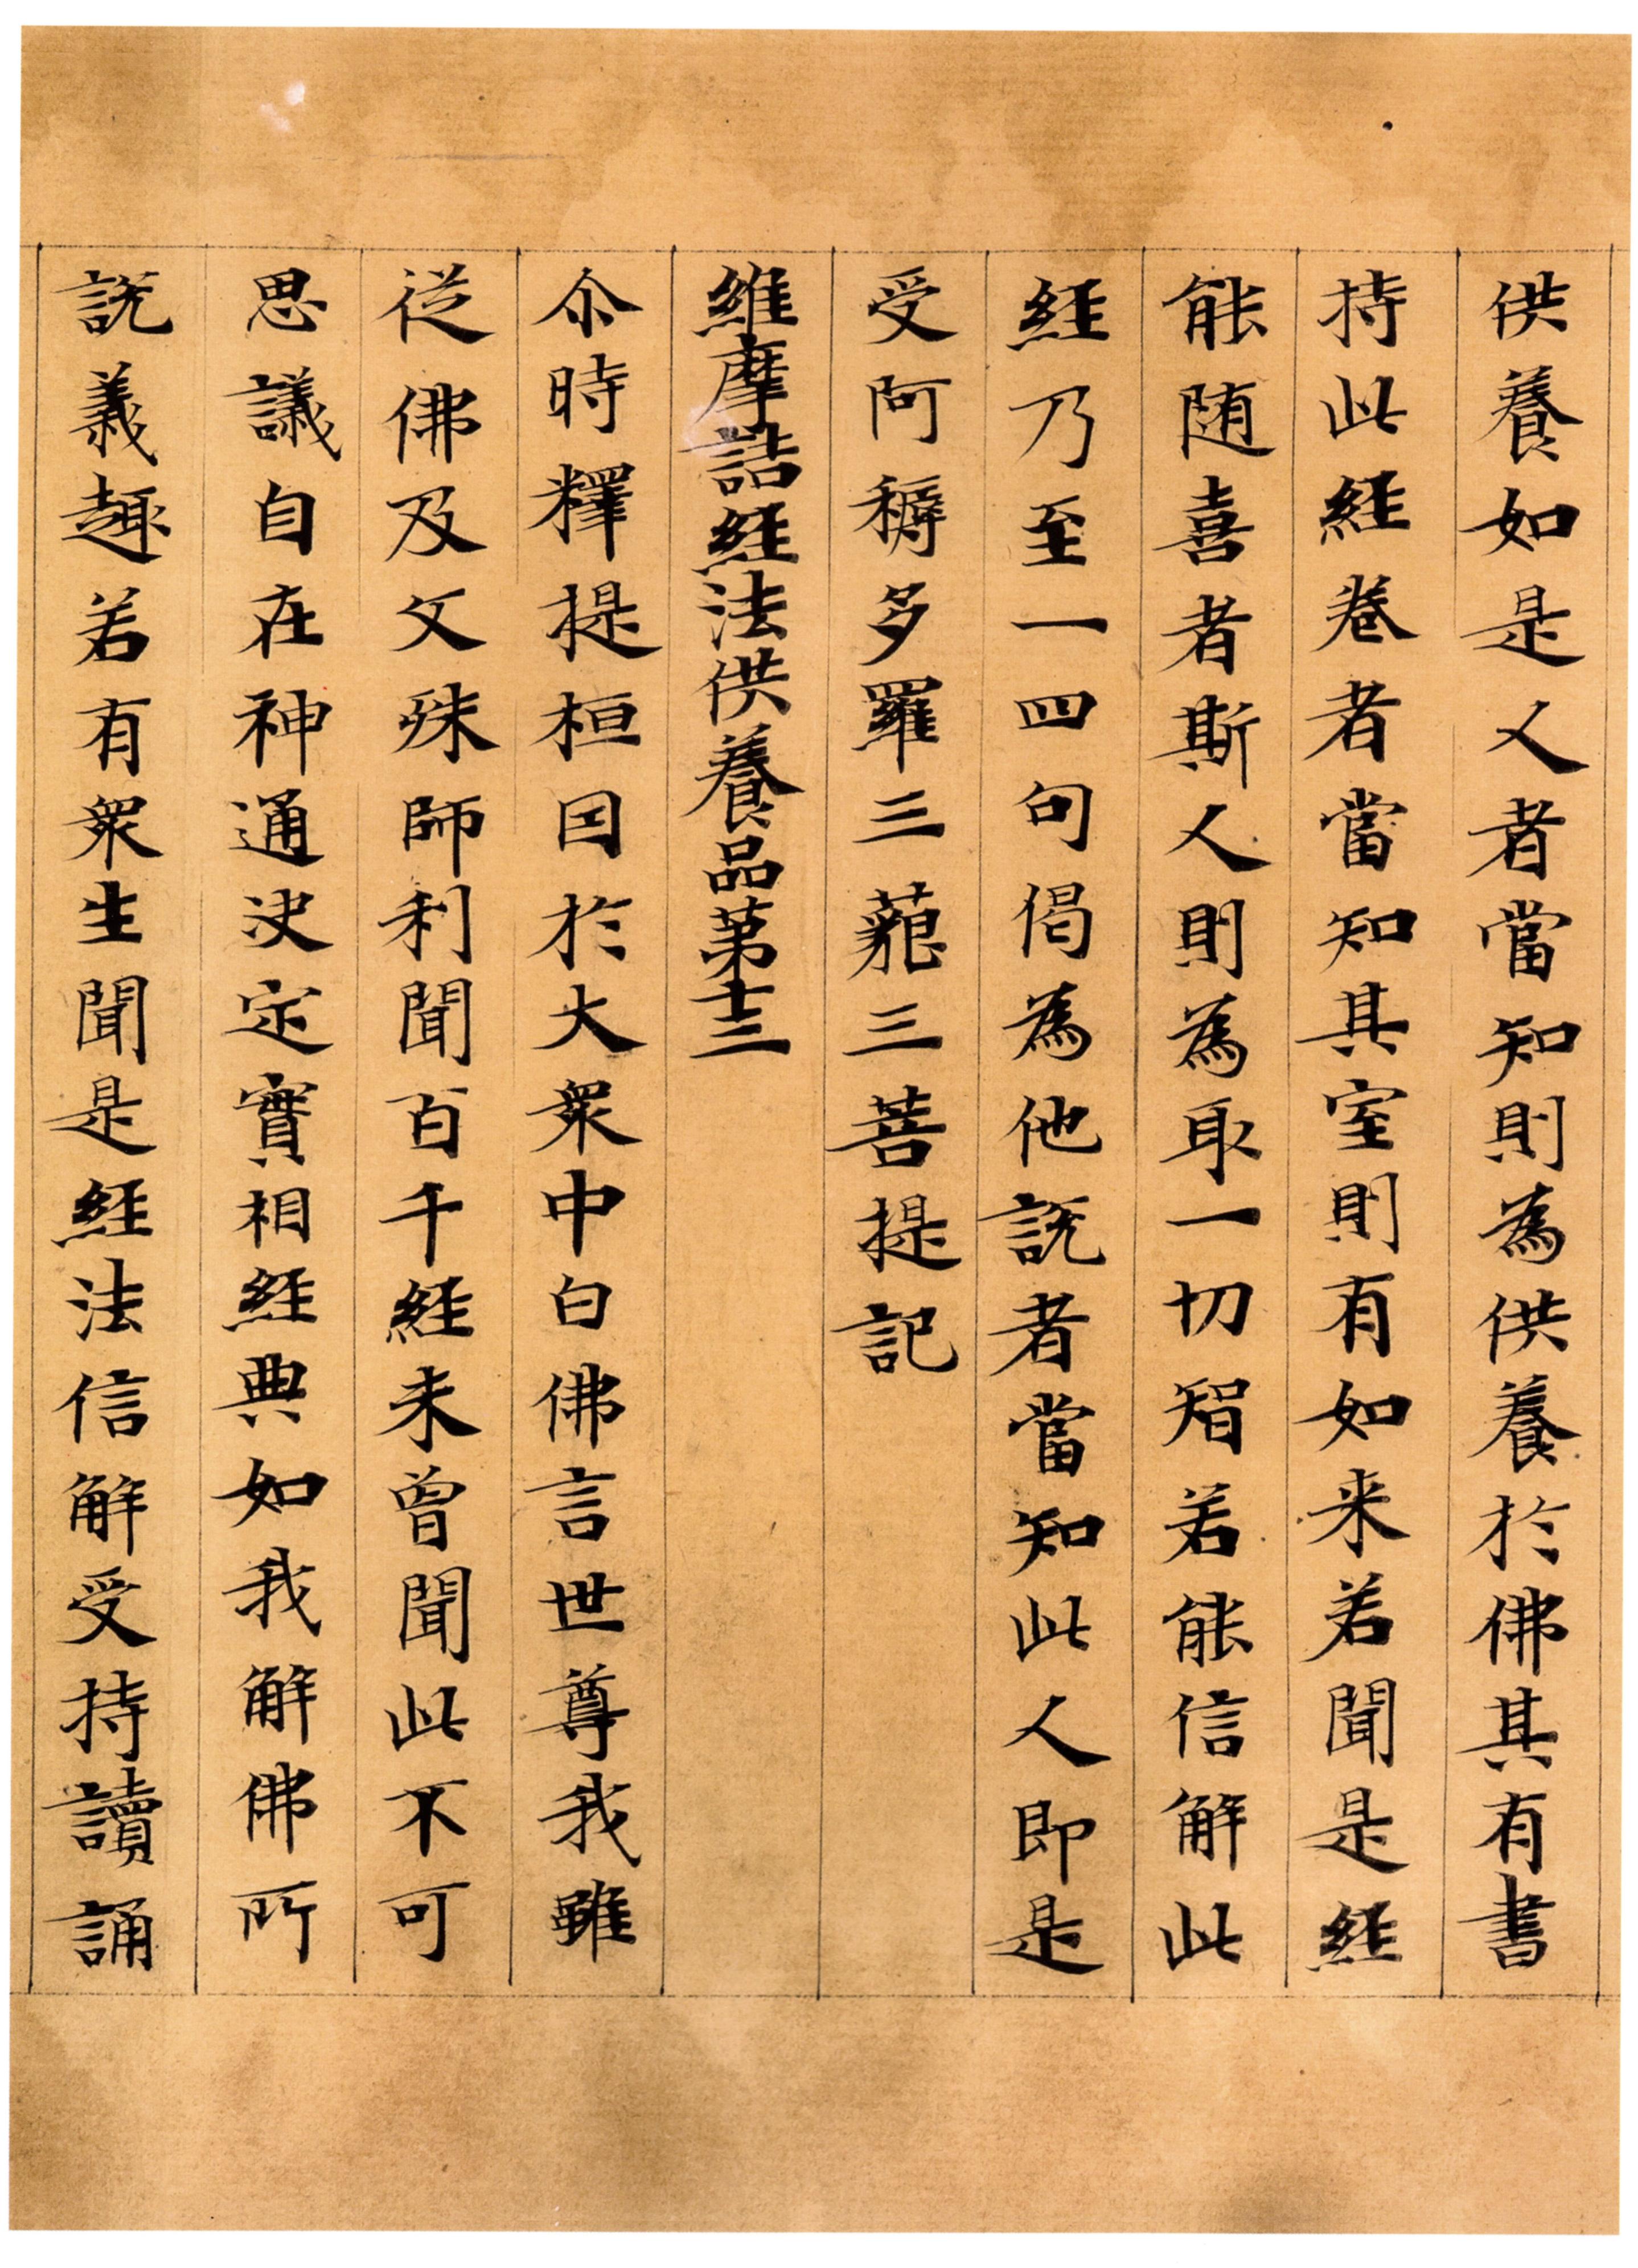 供養如是人者當知則為供養於佛其有書
持此経卷者當知其室則有如来若聞是経
能随喜者斯人則為取一切智若能信解此
経乃至一四句偈為他説者當知此人即是
受阿耨多羅三藐三菩提記
維摩詰経法供養品第十三
尒時釋提桓因於大衆中白佛言世尊我雖
従佛及文殊師利聞百千経未曾聞此不可
思議自在神通决定實相経典如我解佛所
説義趣若有衆生聞是経法信解受持讀誦